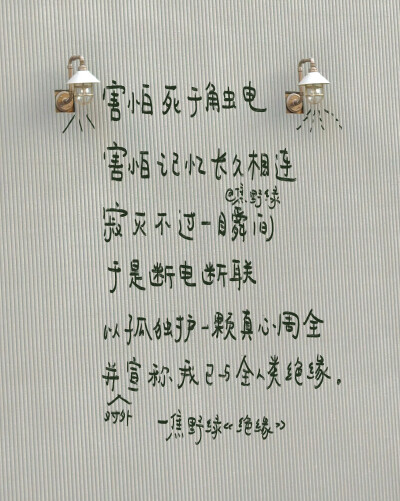 害怕死于触电
害怕记忆长久相连
@焦野绿
寂灭不过一瞬间
于是断电断联
以孤独护一颗真心周全
并宣称我已与全人类绝缘。
对外
—焦野绿《绝缘》